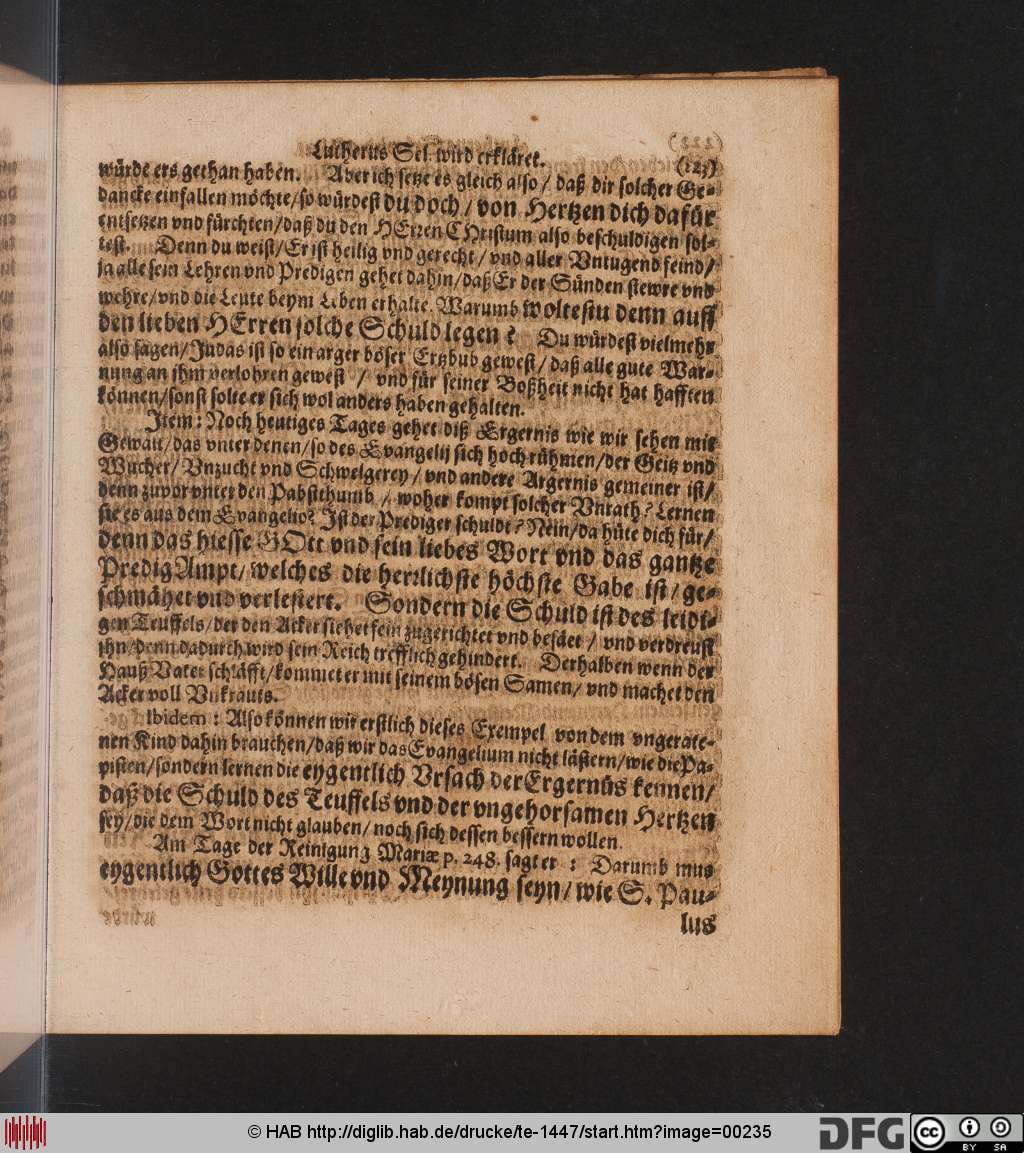 Lutherus Sel. wird erkläret. (223)
würde ers gethan haben. Aber ich setze es gleich also / daß dir solcher Ge-
dancke einfallen möchte/so würdest du doch / von Hertzen dich dafür
entsetzen vnd fürchten/daß du den HErren CHristum also beschuldigen sol-
test. Denn du weist/Er ist heilig vnd gerecht / vnd aller Vntugend feind/
ja alle sein Lehren vnd Predigen gehet dahin/daß Er der Sünden stewre vnd
wehre/vnd die Leute beym Leben erhalte. Warumb woltestu denn auff
den lieben HErren solche Schuld legen? Du würdest vielmehr
also sagen/Judas ist so ein arger böser Ertzbub gewest / daß alle gute War-
nung an ihm verlohren gewest / vnd für seiner Boßheit nicht hat hafften
können/sonst solte er sich wol anders haben gehalten.
Item: Noch heutiges Tages gehet diß Ergernis wie wir sehen mit
Gewalt/das vnter denen/so des Evangelij sich hoch rühmen/der Geitz vnd
Wucher/ Vnzucht vnd Schwelgerey / vnd andere Argernis gemeiner ist/
denn zuvor vnter den Pabstthumb / woher kompt solcher Vnrath? Lernen
sie es aus dem Evangelio? Ist der Prediger schuldt? Nein/da hüte dich für/
denn das hiesse GOtt vnd sein liebes Wort vnd das gantze
PredigAmpt/ welches die herrlichste höchste Gabe ist / ge-
schmähet vnd verlestert. Sondern die Schuld ist des leidi-
gen Teuffels/der den Acker siehet fein zugerichtet vnd besäet / vnd verdreust
ihn/denn dadurch wird sein Reich trefflich gehindert. Derhalben wenn der
Hauß Vater schläfft/kommet er mit seinem bösen Samen/ vnd machet den
Acker voll Vnkrauts.
Ibidem: Also können wir erstlich dieses Exempel von dem vngerate-
nen Kind dahin brauchen/daß wir das Evangelium nicht lästern/wie die Pa-
pisten/sondern lernen die eygentlich Vrsach der Ergernüs kennen/
daß die Schuld des Teuffels vnd der vngehorsamen Hertzen
sey/die dem Wort nicht glauben/ noch sich dessen bessern wollen.
Am Tage der Reinigung Mariæ p. 248. sagt er : Darumb mus
eygentlich Gottes Wille vnd Meynung seyn/ wie S. Pau-
lus
© HAB http://diglib.hab.de/drucke/te-1447/start.htm?image=00235
DFG
cc BY SA